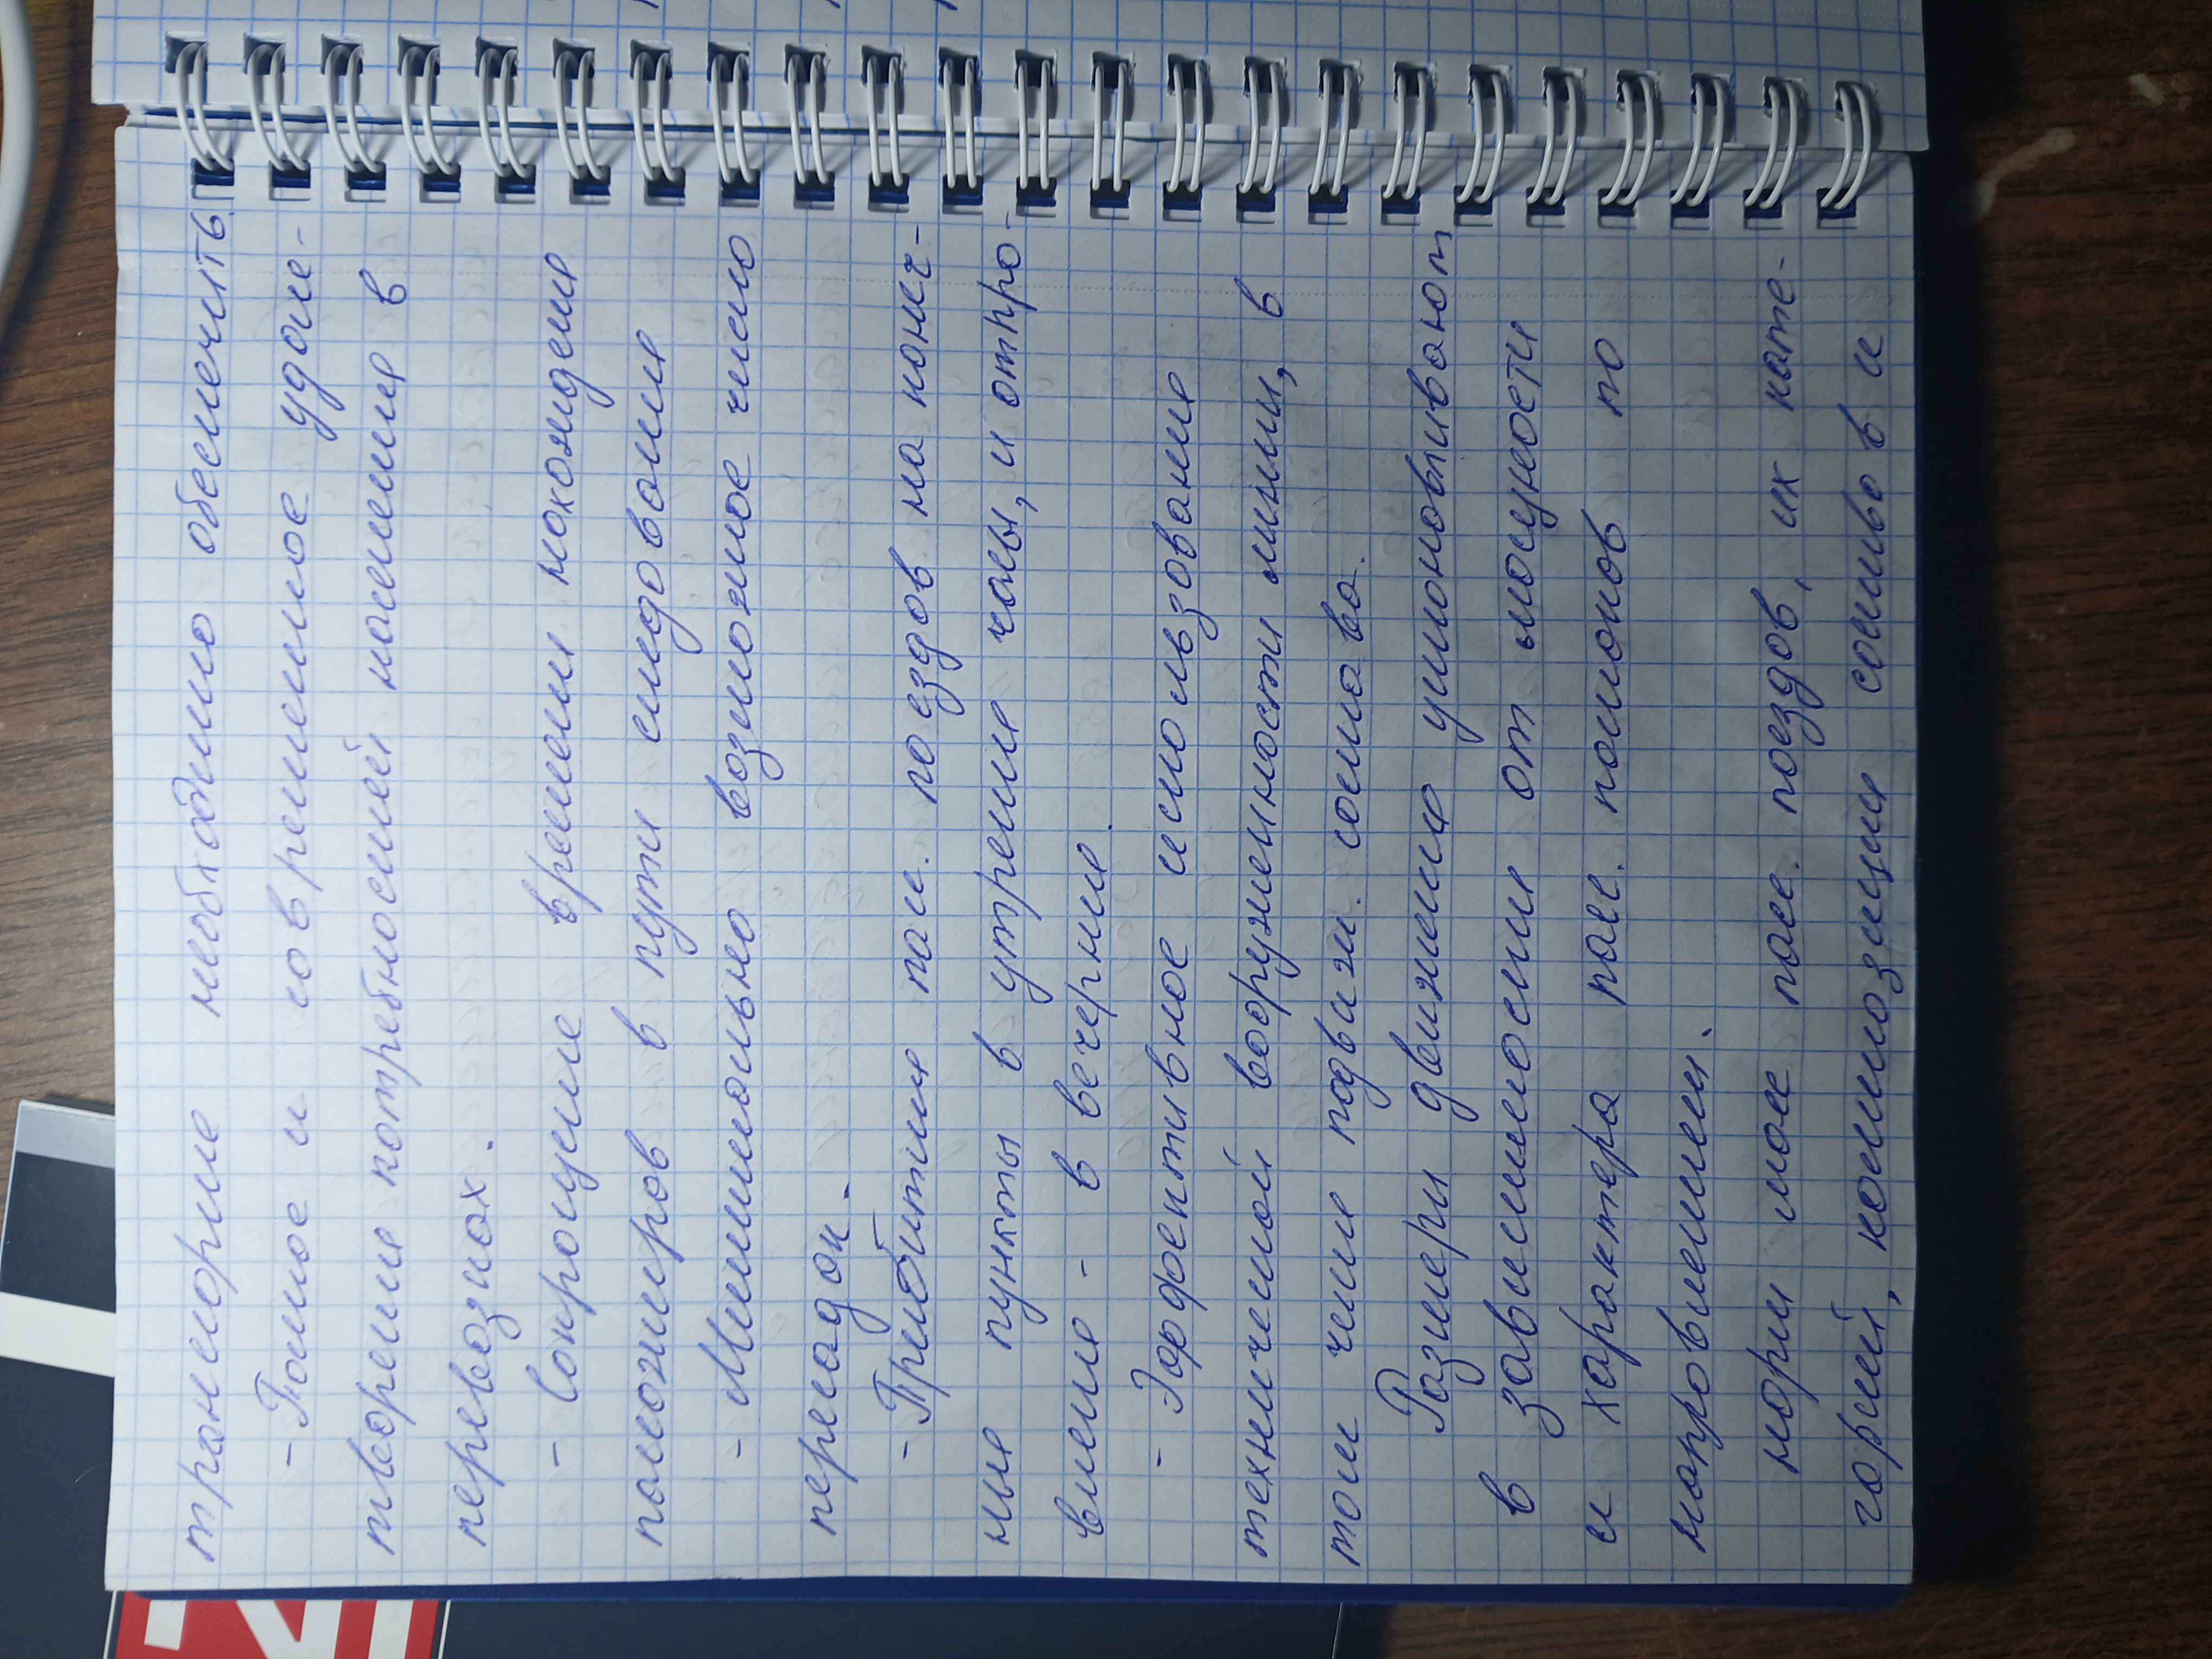 транспорте необходимо обеспечить
- Полное и современное удовле-
творение потребностей населения в
перевозках.
- Сокращение времени нахождения
пассажиров в пути следования
- Минимально возможное число
пересадок.
- Прибытие пасс. поездов на конеч-
ные пункты в утренние часы, и отпра-
вление - в вечерние.
- Эффективное использование
технической вооруженности линии, в
том числе подвиж. состава.
Размеры движения устанавливают
в зависимости от мощности
и характера пасс. потоков по
направлениям.
пасс. поездов, их кате-
горий, композиции состава и